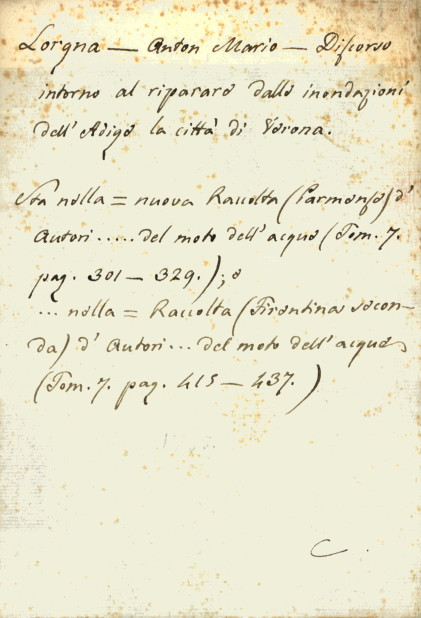 Lorgna — Anton Mario — Discorso
intorno al riparare dalle inondazioni
dell' Adige la città di Verona.
Sta nella = nuova Raccolta (Parmense) d'
Autori ..... del moto dell' acque (Tom. 7.
pag. 301 — 329.); e
... nella = Raccolta (Fiorentina secon-
da) d' Autori ... del moto dell' acque,
(Tom. 7. pag. 415 — 437.)
C.